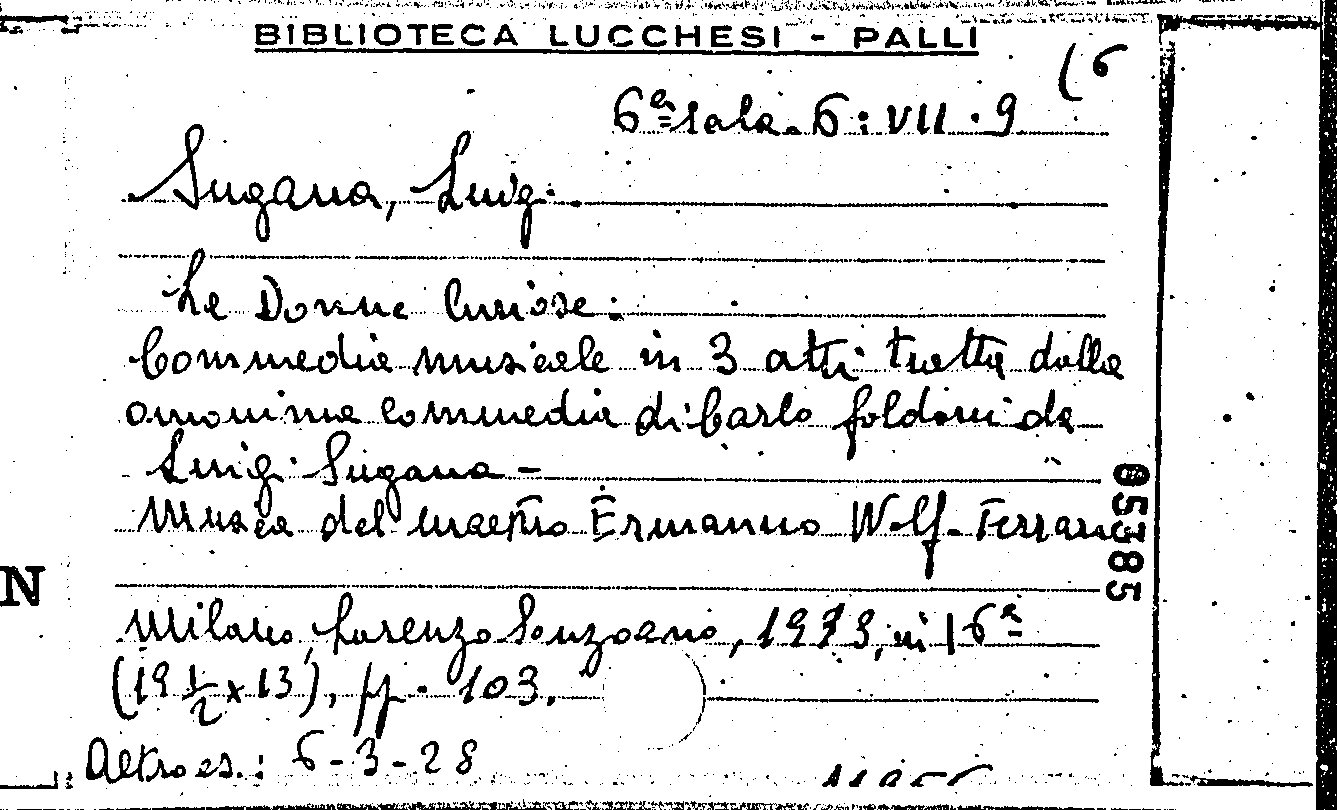 BIBLIOTECA LUCCHESI - PALLI
(6
6ª sala. 6 : VII . 9
Sugana, Luigi.
Le Donne Curiose:
Commedia musicale in 3 atti tratta dalla
omonima commedia di Carlo Goldoni da
Luigi Sugana -
Musica del maestro Ermanno Wolf-Ferrari
05385
N
Milano, Lorenzo Sonzogno, in 16ª
(19 1/2 x 13), pp. 103.
Altro es.: 6-3-28